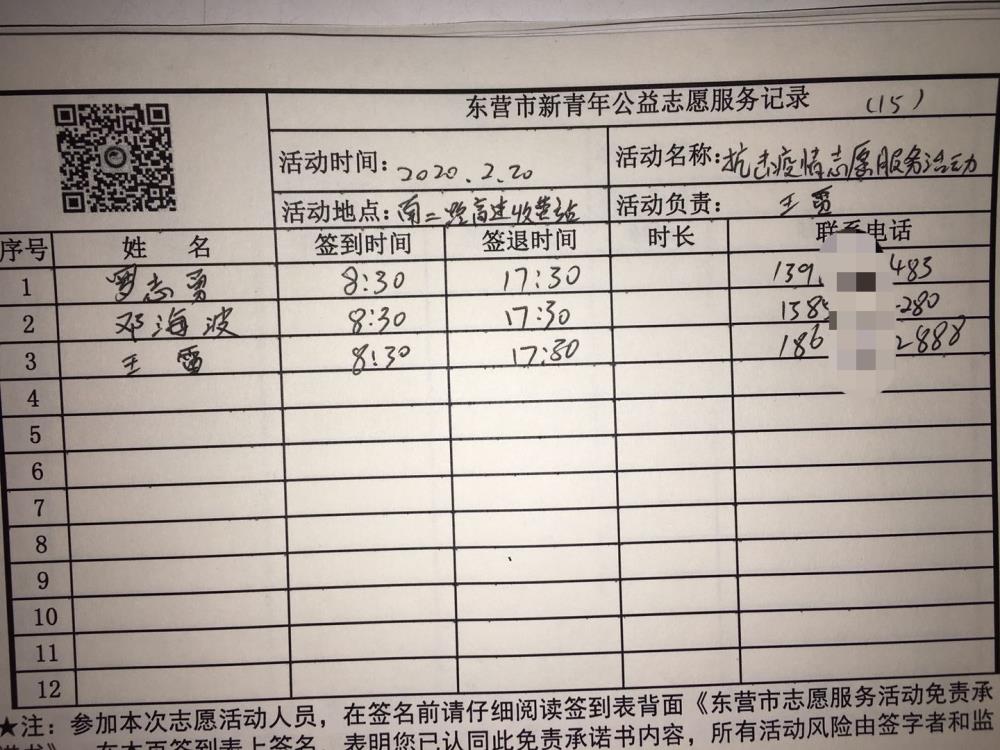 东营市新青年公益志愿服务记录 (15)
活动时间: 2020.2.20 活动名称: 抗击疫情志愿服务活动
活动地点: 南二路高速收费站 活动负责: 王雷
序号 姓 名 签到时间 签退时间 时长 联系电话
1 罗志勇 8:30 17:30 139 483
2 邓海波 8:30 17:30 1385 280
3 王雷 8:30 17:30 186 2888
4
5
6
7
8
9
10
11
12
★注: 参加本次志愿活动人员,在签名前请仔细阅读签到表背面《东营市志愿服务活动免责承
书》,在本页签到表上签名,表明您已认同此免责承诺书内容,所有活动风险由签字者和监